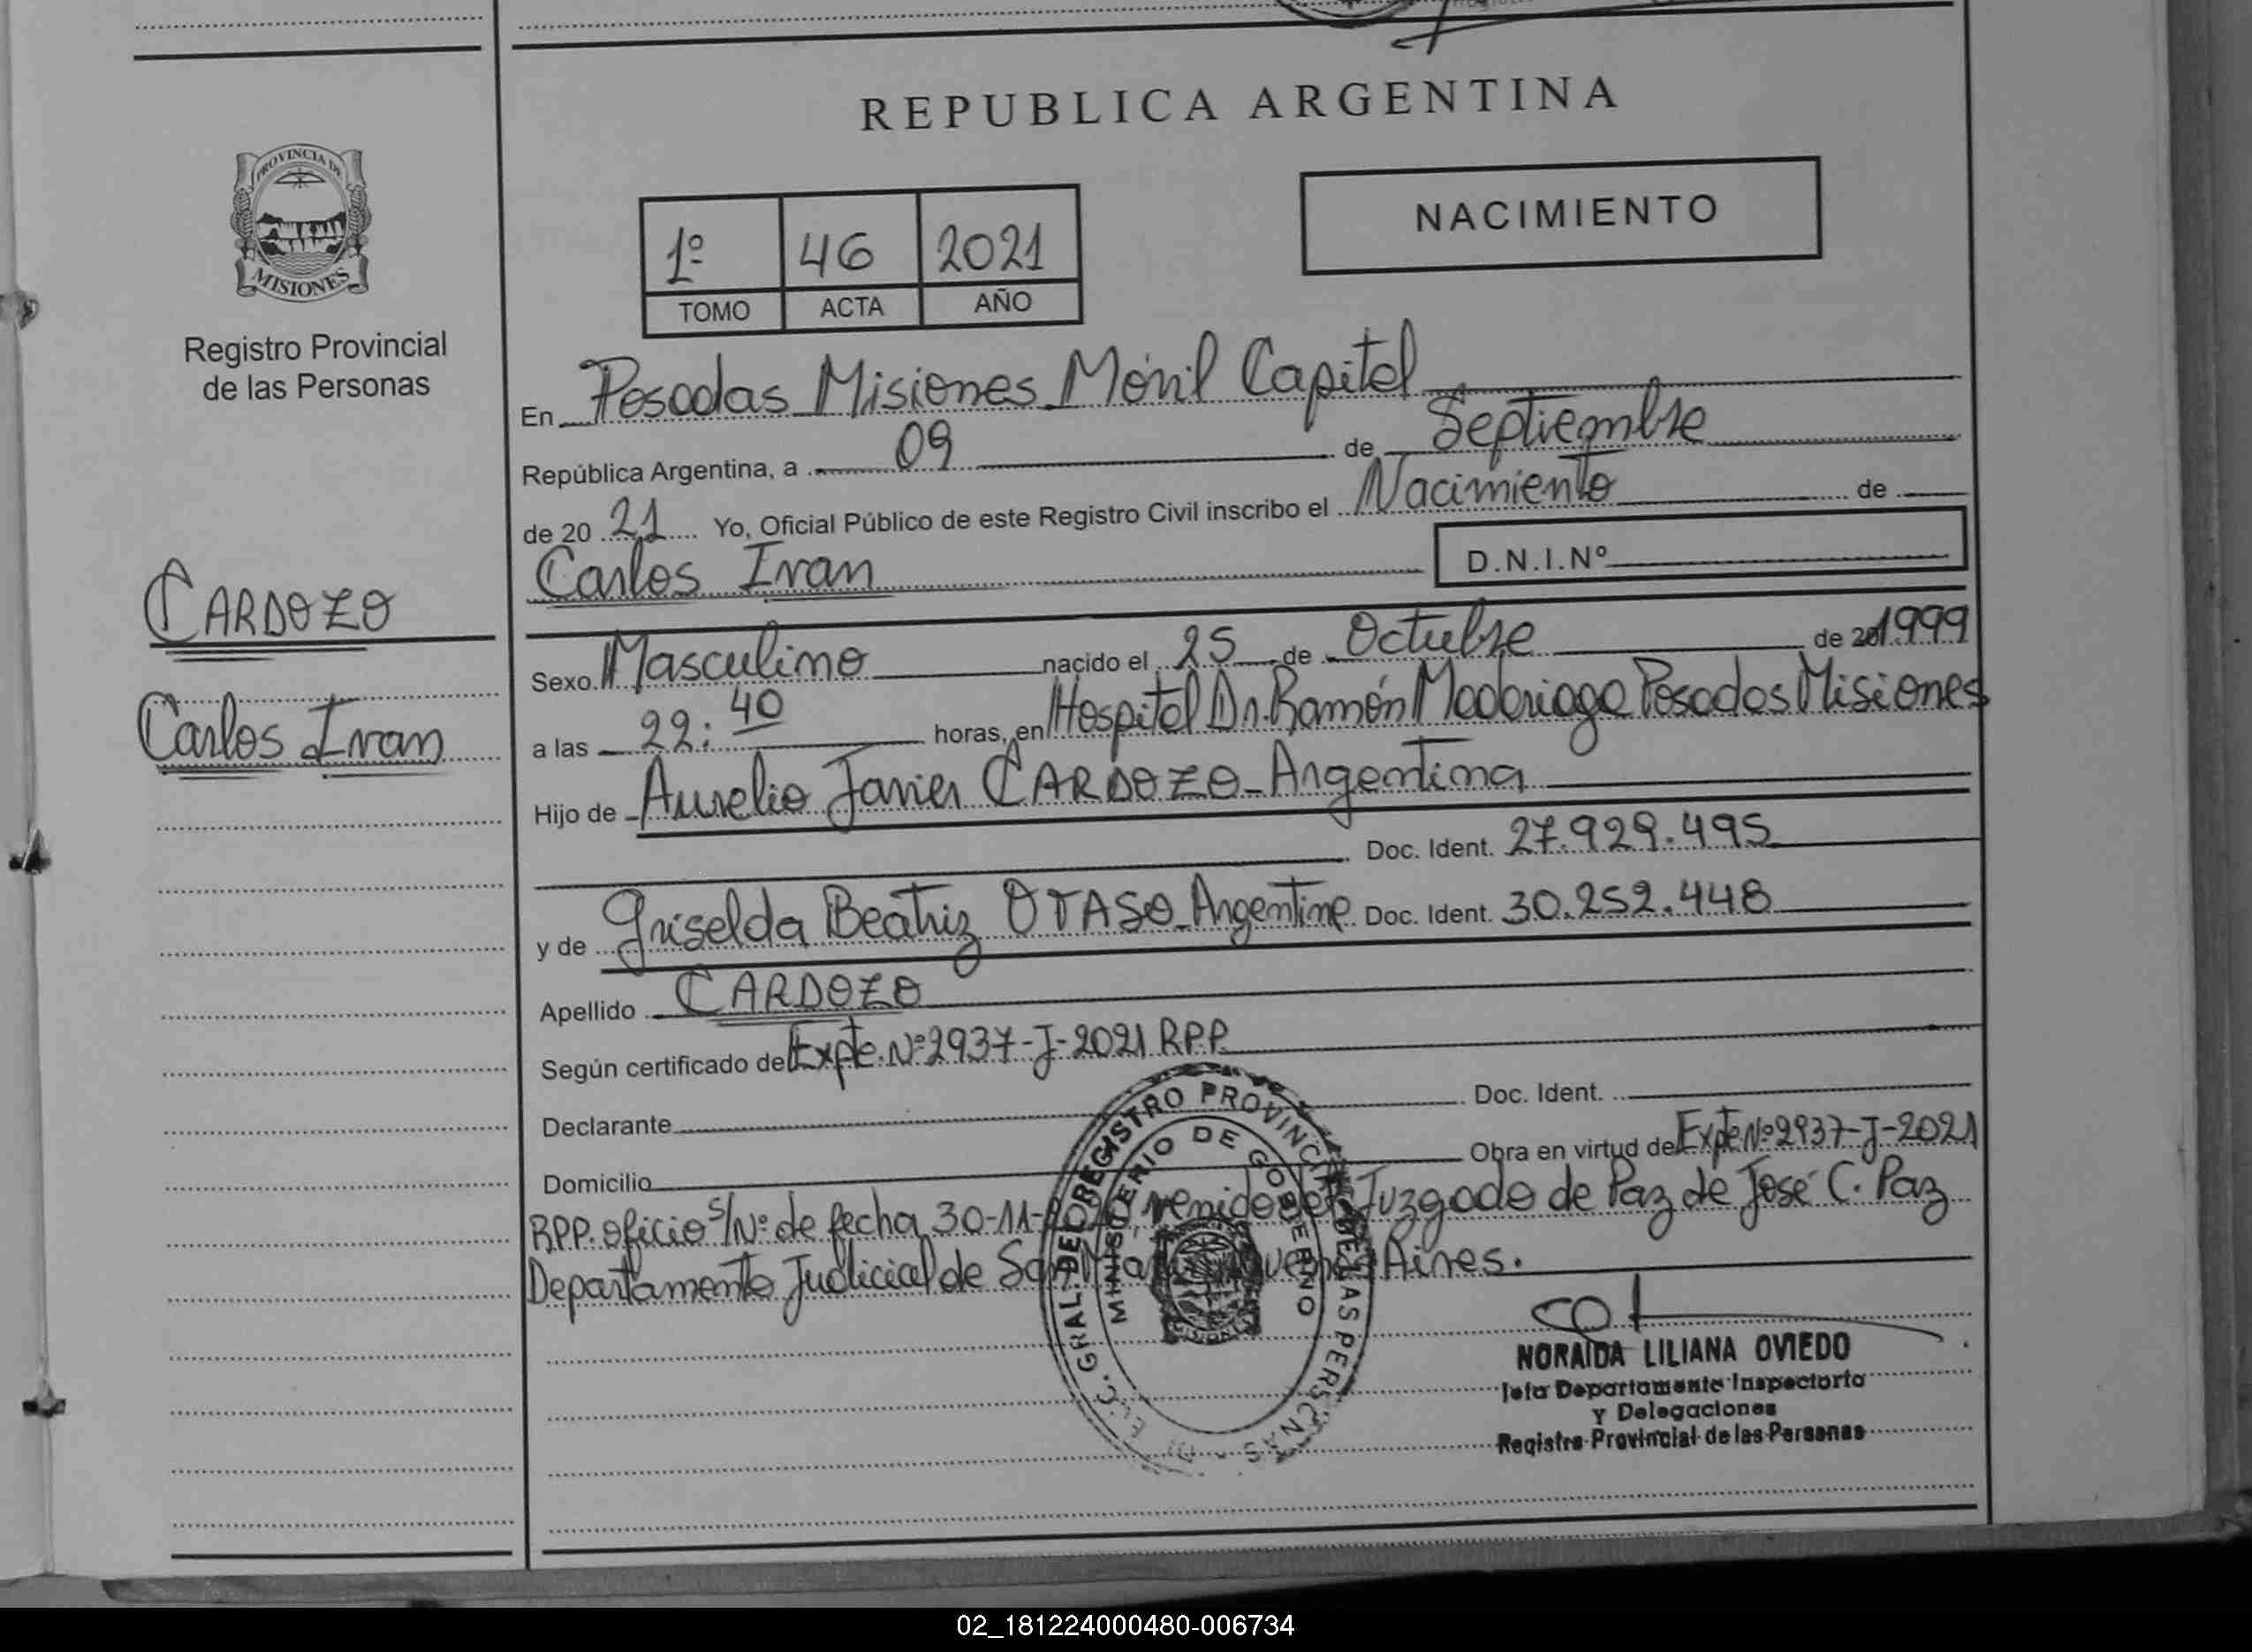 REPUBLICA ARGENTINA
PROVINCIA DE
MISIONES
Registro Provincial
de las Personas
NACIMIENTO
1º 46 2021
TOMO ACTA AÑO
En Posadas Misiones Móvil Capital
República Argentina, a 09 de Septiembre
de 20 21 Yo, Oficial Público de este Registro Civil inscribo el Nacimiento de
Carlos Ivan D.N.I.Nº
CARDOZO
Carlos Ivan
Sexo Masculino nacido el 25 de Octubre de 20 1999
a las 22:40 horas, en Hospital Dr. Ramón Madariaga Posadas Misiones
Hijo de Aurelio Javier CARDOZO - Argentina
Doc. Ident. 27.929.495
y de Griselda Beatriz OTASO - Argentina Doc. Ident. 30.252.448
Apellido CARDOZO
Según certificado de Expte. Nº 2937-J-2021 RPP
Declarante Doc. Ident.
Domicilio Obra en virtud de Expte Nº 2937-J-2021
RPP. oficio s/Nº de fecha 30-11- Juzgado de Paz de José C. Paz
Departamento Judicial de Aires.
REGISTRO PROVINCIAL DE LAS PERSONAS
MINISTERIO DE GOBIERNO
NORAIDA LILIANA OVIEDO
Jefa Departamento Inspectoría
y Delegaciones
Registro Provincial de las Personas
02_181224000480-006734